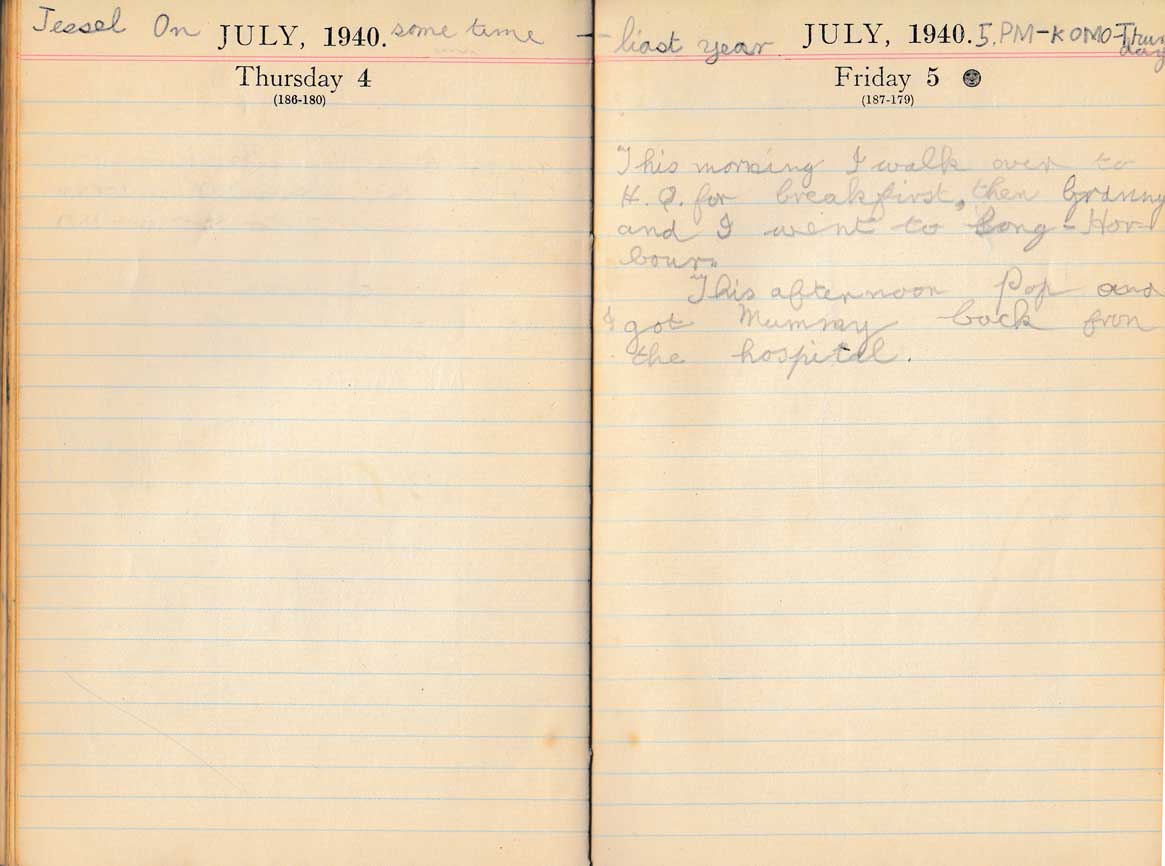 Jessel On JULY, 1940. some time -
Thursday 4
(186-180)
- liast year JULY, 1940. 5. PM-KOMO-Thurs
day
Friday 5
(187-179)
This morning I walk over to
H. Q. for breakfirst, then Granny
and I went to Long-Har-
bour.
This afternoon Pop and
I got Mummy back fron
the hospital.